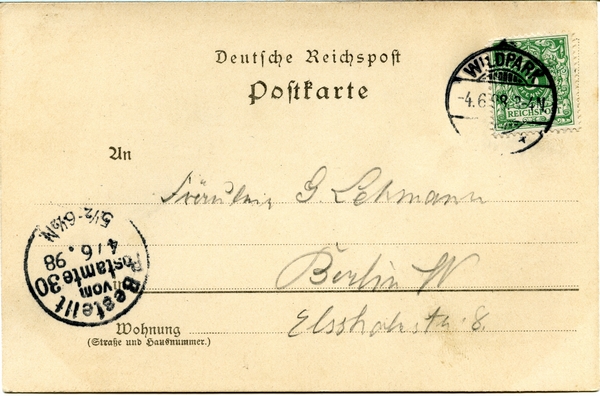 Deutsche Reichspost
Postkarte
WILDPARK
-4.6.98.3-4N.
REICHSPOST
An
Fräulein G. Lehmann
Berlin W
5½-6½N
4/6.98
Bestellt
vom
Postamte 30
Wohnung
(Straße und Hausnummer.)
8.